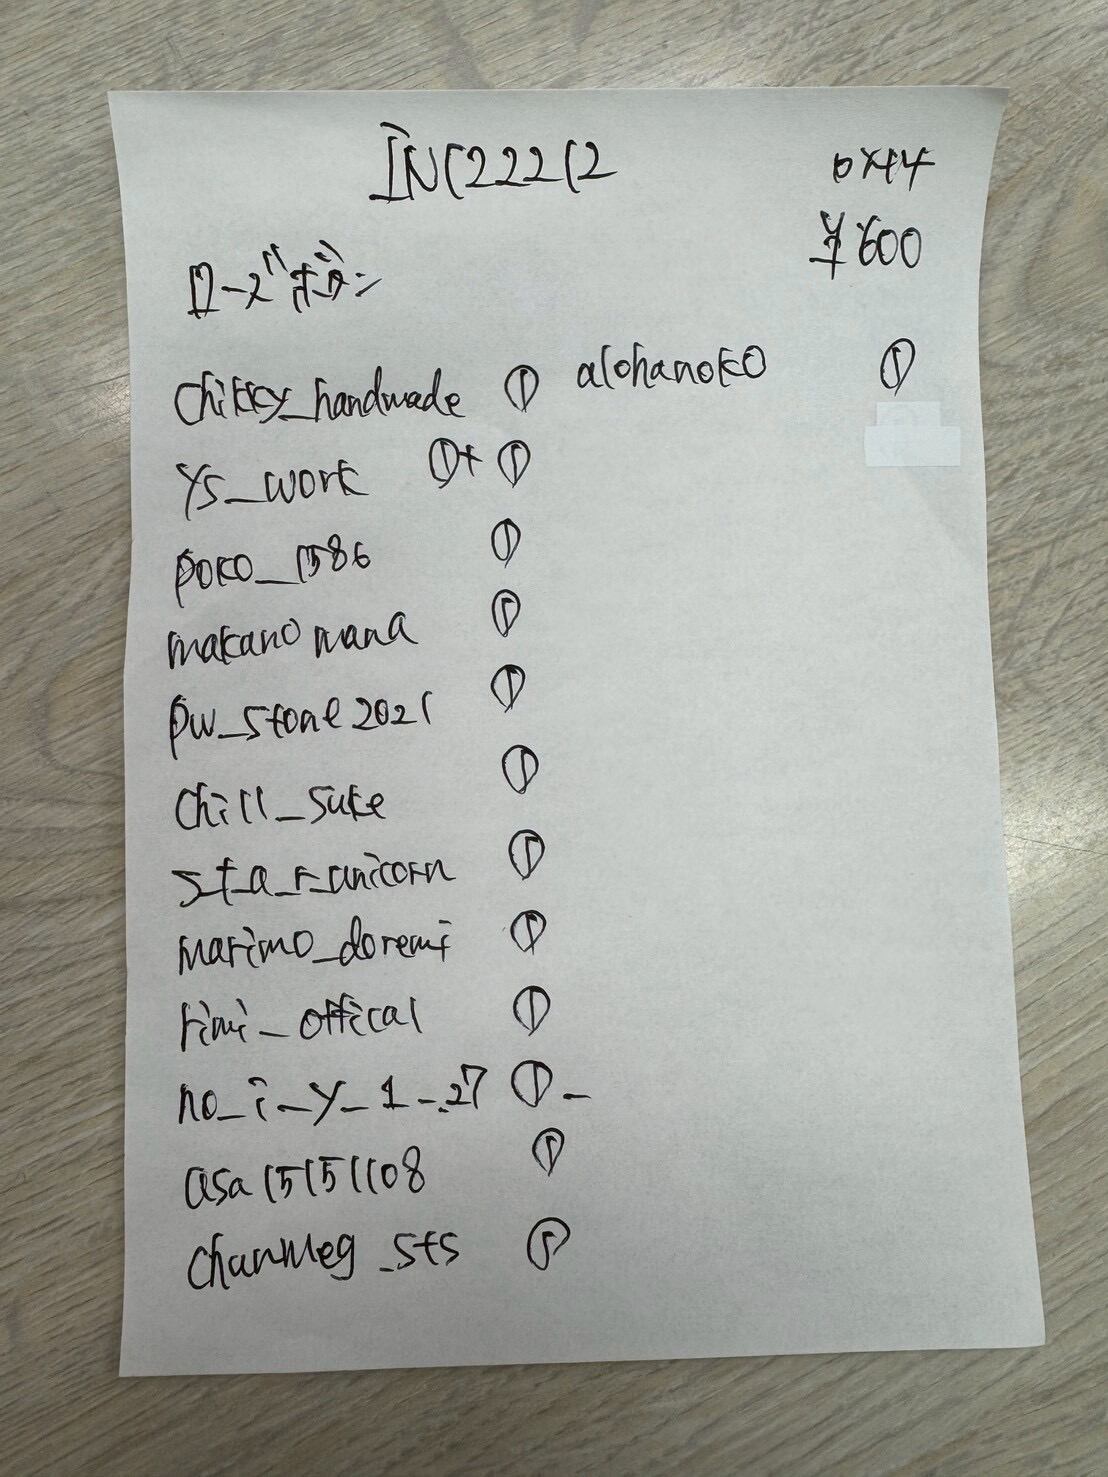 IN122212
6X44
¥600
ローズボタン
chikky_handmade ① alohanoko ①
ys_work ①+ ①
poko_1586 ①
makanomana ①
pw_stone2021 ①
chill_suke ①
s_t_a_r_unicorn ①
marimo_doremi ①
rimi_offical ①
no_i_y_1_.27 ①_
asa15151108 ①
chanmeg_sts ①